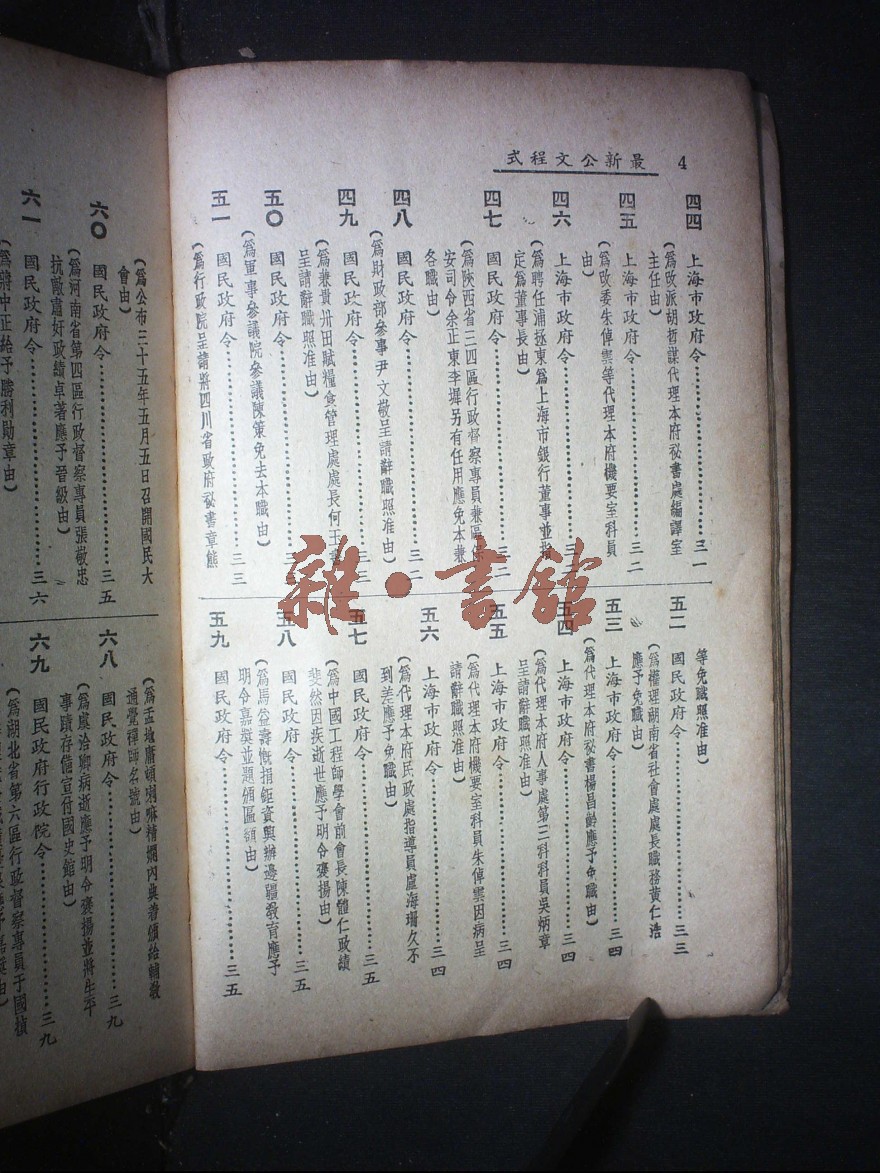 最新公文程式 4
四四 上海市政府令……三一
(爲改派胡哲謀代理本府祕書處編譯室
主任由)
四五 上海市政府令……三二
(爲改委朱倬雲等代理本府機要室科員
由)
四六 上海市政府令……三二
(爲聘任浦拯東爲上海市銀行董事並指
定爲董事長由)
四七 國民政府令……三二
(爲陝西省三四區行政督察專員兼區保
安司令余正東李墀另有任用應免本兼
各職由)
四八 國民政府令……三二
(爲財政部參事尹文敬呈請辭職照准由)
四九 國民政府令……三三
(爲兼貴州田賦糧食管理處處長何玉書
呈請辭職照准由)
五〇 國民政府令……三三
(爲軍事參議院參議陳策免去本職由)
五一 國民政府令……三三
(爲行政院呈請將四川省政府祕書章熊
等免職照准由)
五二 國民政府令……三三
(爲權理湖南省社會處處長職務黃仁浩
應予免職由)
五三 上海市政府令……三四
(爲代理本府祕書楊昌齡應予免職由)
五四 上海市政府令……三四
(爲代理本府人事處第二科科員吳炳章
呈請辭職照准由)
五五 上海市政府令……三四
(爲代理本府機要室科員朱倬雲因病呈
請辭職照准由)
五六 上海市政府令……三四
(爲代理本府民政處指導員盧海珊久不
到差應予免職由)
五七 國民政府令……三五
(爲中國工程師學會前會長陳體仁政績
斐然因疾逝世應予明令褒揚由)
五八 國民政府令……三五
(爲馬益壽慨捐鉅資興辦邊疆教育應予
明令嘉獎並題頒匾額由)
五九 國民政府令……三五
(爲公布三十五年五月五日召開國民大
會由)
六〇 國民政府令……三五
(爲河南省第四區行政督察專員張敬忠
抗敵肅奸政績卓著應予晉級由)
六一 國民政府令……三六
(爲蔣中正給予勝利勛章由)
(爲孟地庸頓喇嘛精嫻內典普頒給輔教
通覺禪師名號由)
六八 國民政府令……三九
(爲虞洽卿病逝應予明令褒揚並將生平
事蹟存備宣付國史館由)
六九 國民政府行政院令……三九
(爲湖北省第六區行政督察專員于國楨
雜·書館